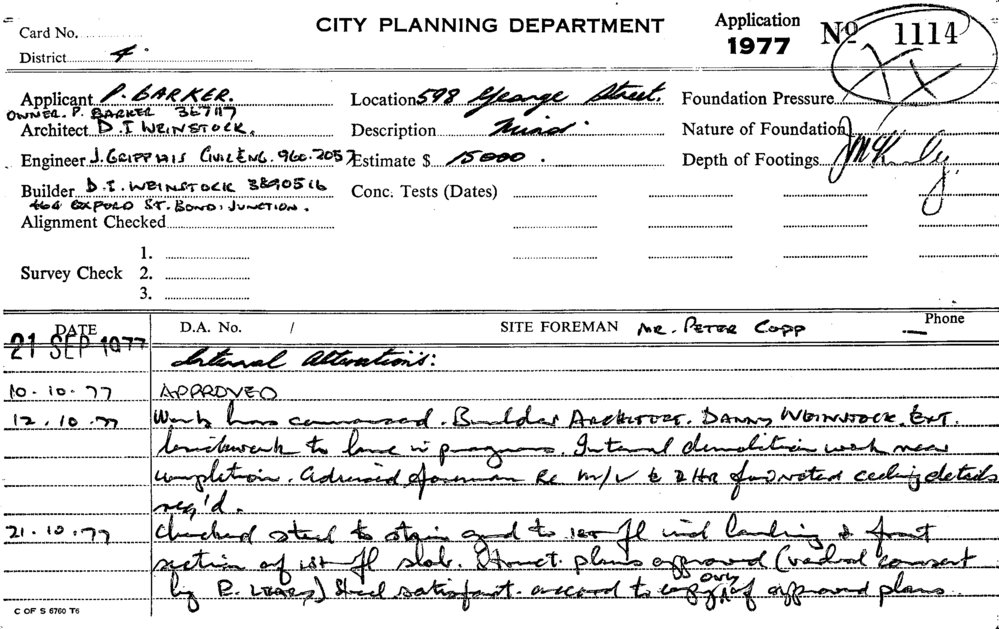 CITY PLANNING DEPARTMENT
Application
1977
No 1114
XX
Card No.
District 4.
Applicant P. BARKER.
OWNER. P. BARKER 367117
Architect D. I WEINSTOCK.
Engineer J. GRIFFITHS CIVIL ENG. 960-2057
Builder D. I. WEINSTOCK 3890516
464 OXFORD ST. BOND. JUNCTION.
Alignment Checked
Survey Check 1.
2.
3.
Location 598 George Street.
Description
Estimate $ 15000.
Conc. Tests (Dates)
Foundation Pressure
Nature of Foundation
Depth of Footings
DATE D.A. No. / SITE FOREMAN Mr. PETER COPP Phone —
21 SEP 1977
Internal Alterations:
10.10.77 APPROVED
12.10.77 Work has commenced. Builder ARCHITECT. DANNY WEINSTOCK. EXT.
brickwork to lane in progress. Internal demolition work near
completion. Advised foreman Re M/V & 2 HR ceiling details
req'd.
21.10.77 Checked steel to stairs gnd to 1st fl incl landing & front
section of 1st fl slab. Struct. plans approved (verbal consent
by P. ) Steel satisfact. accord to our copy of approved plans
C OF S 6760 T6